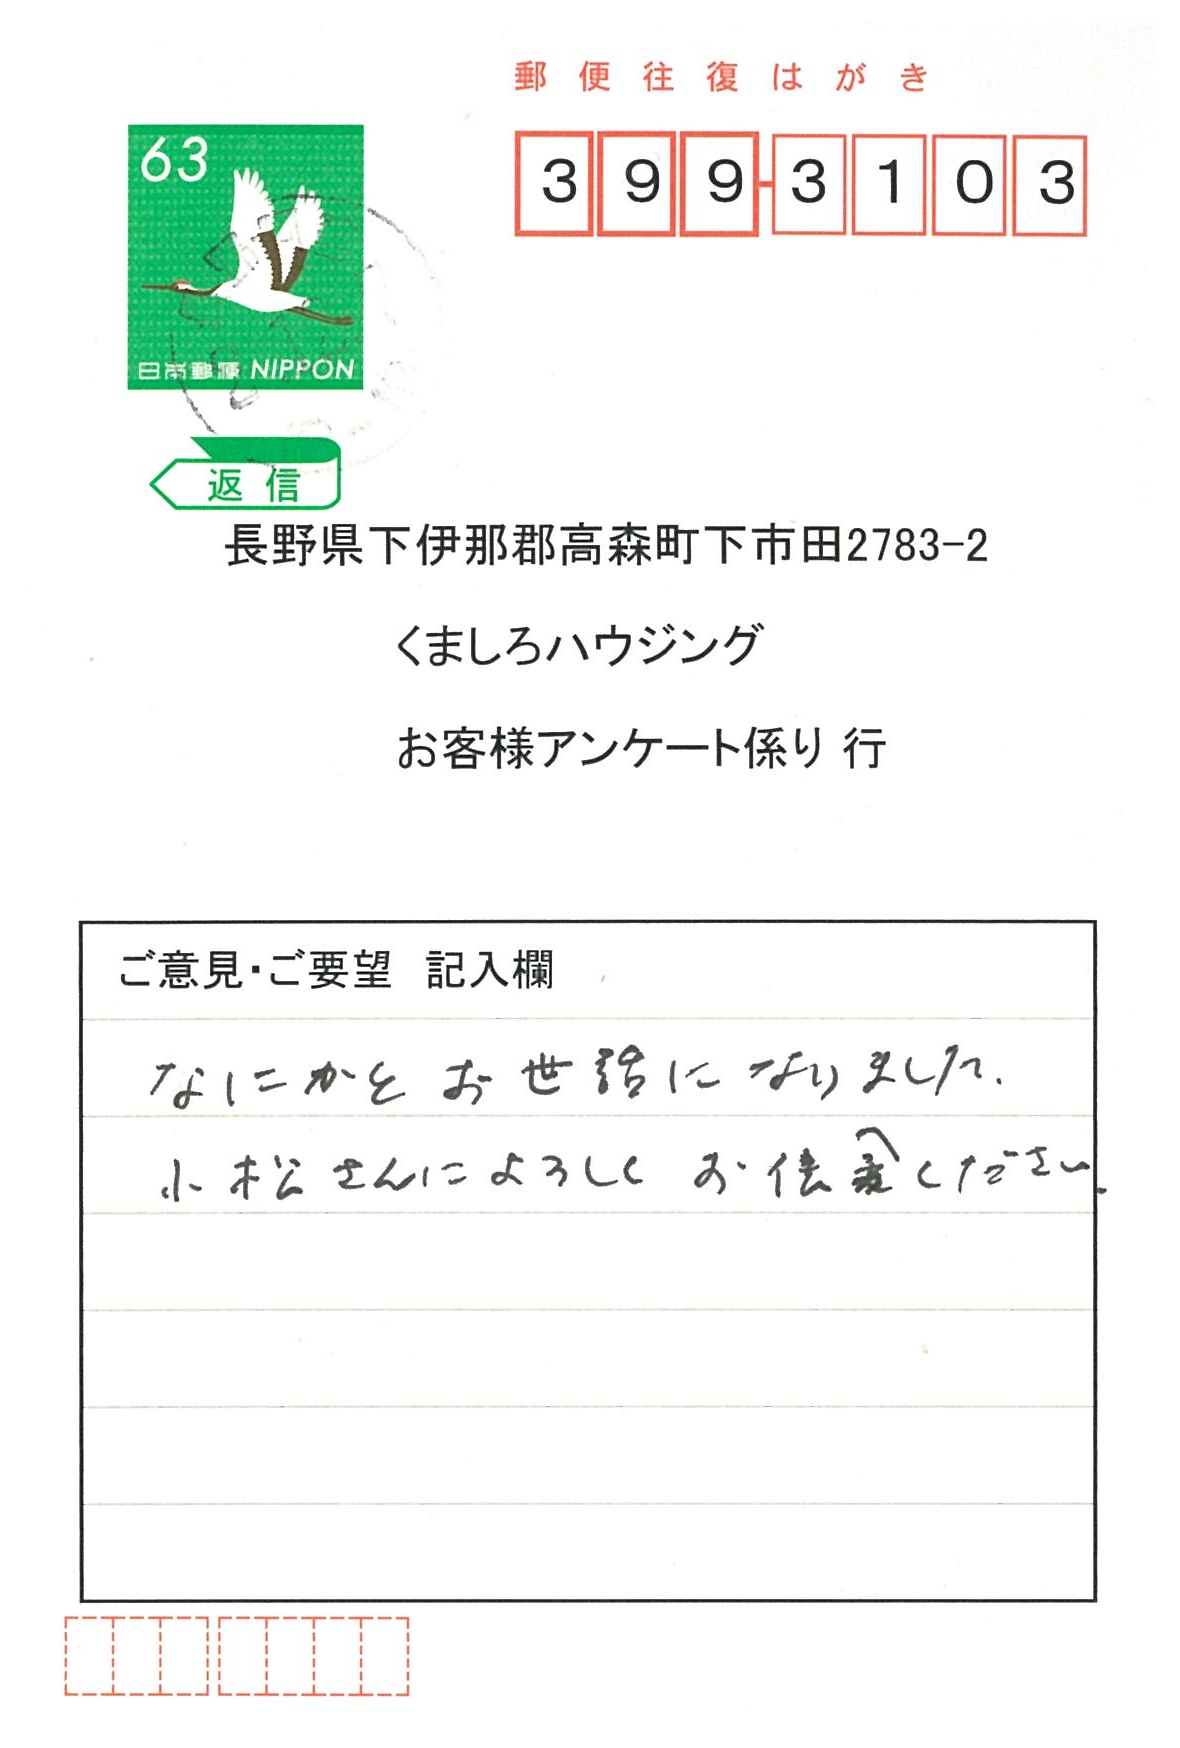 郵便往復はがき
63
399-3103
日本郵便 NIPPON
返信
長野県下伊那郡高森町下市田2783-2
くましろハウジング
お客様アンケート係り 行
ご意見・ご要望 記入欄
なにかとお世話になりました.
小松さんによろしくお伝えください.